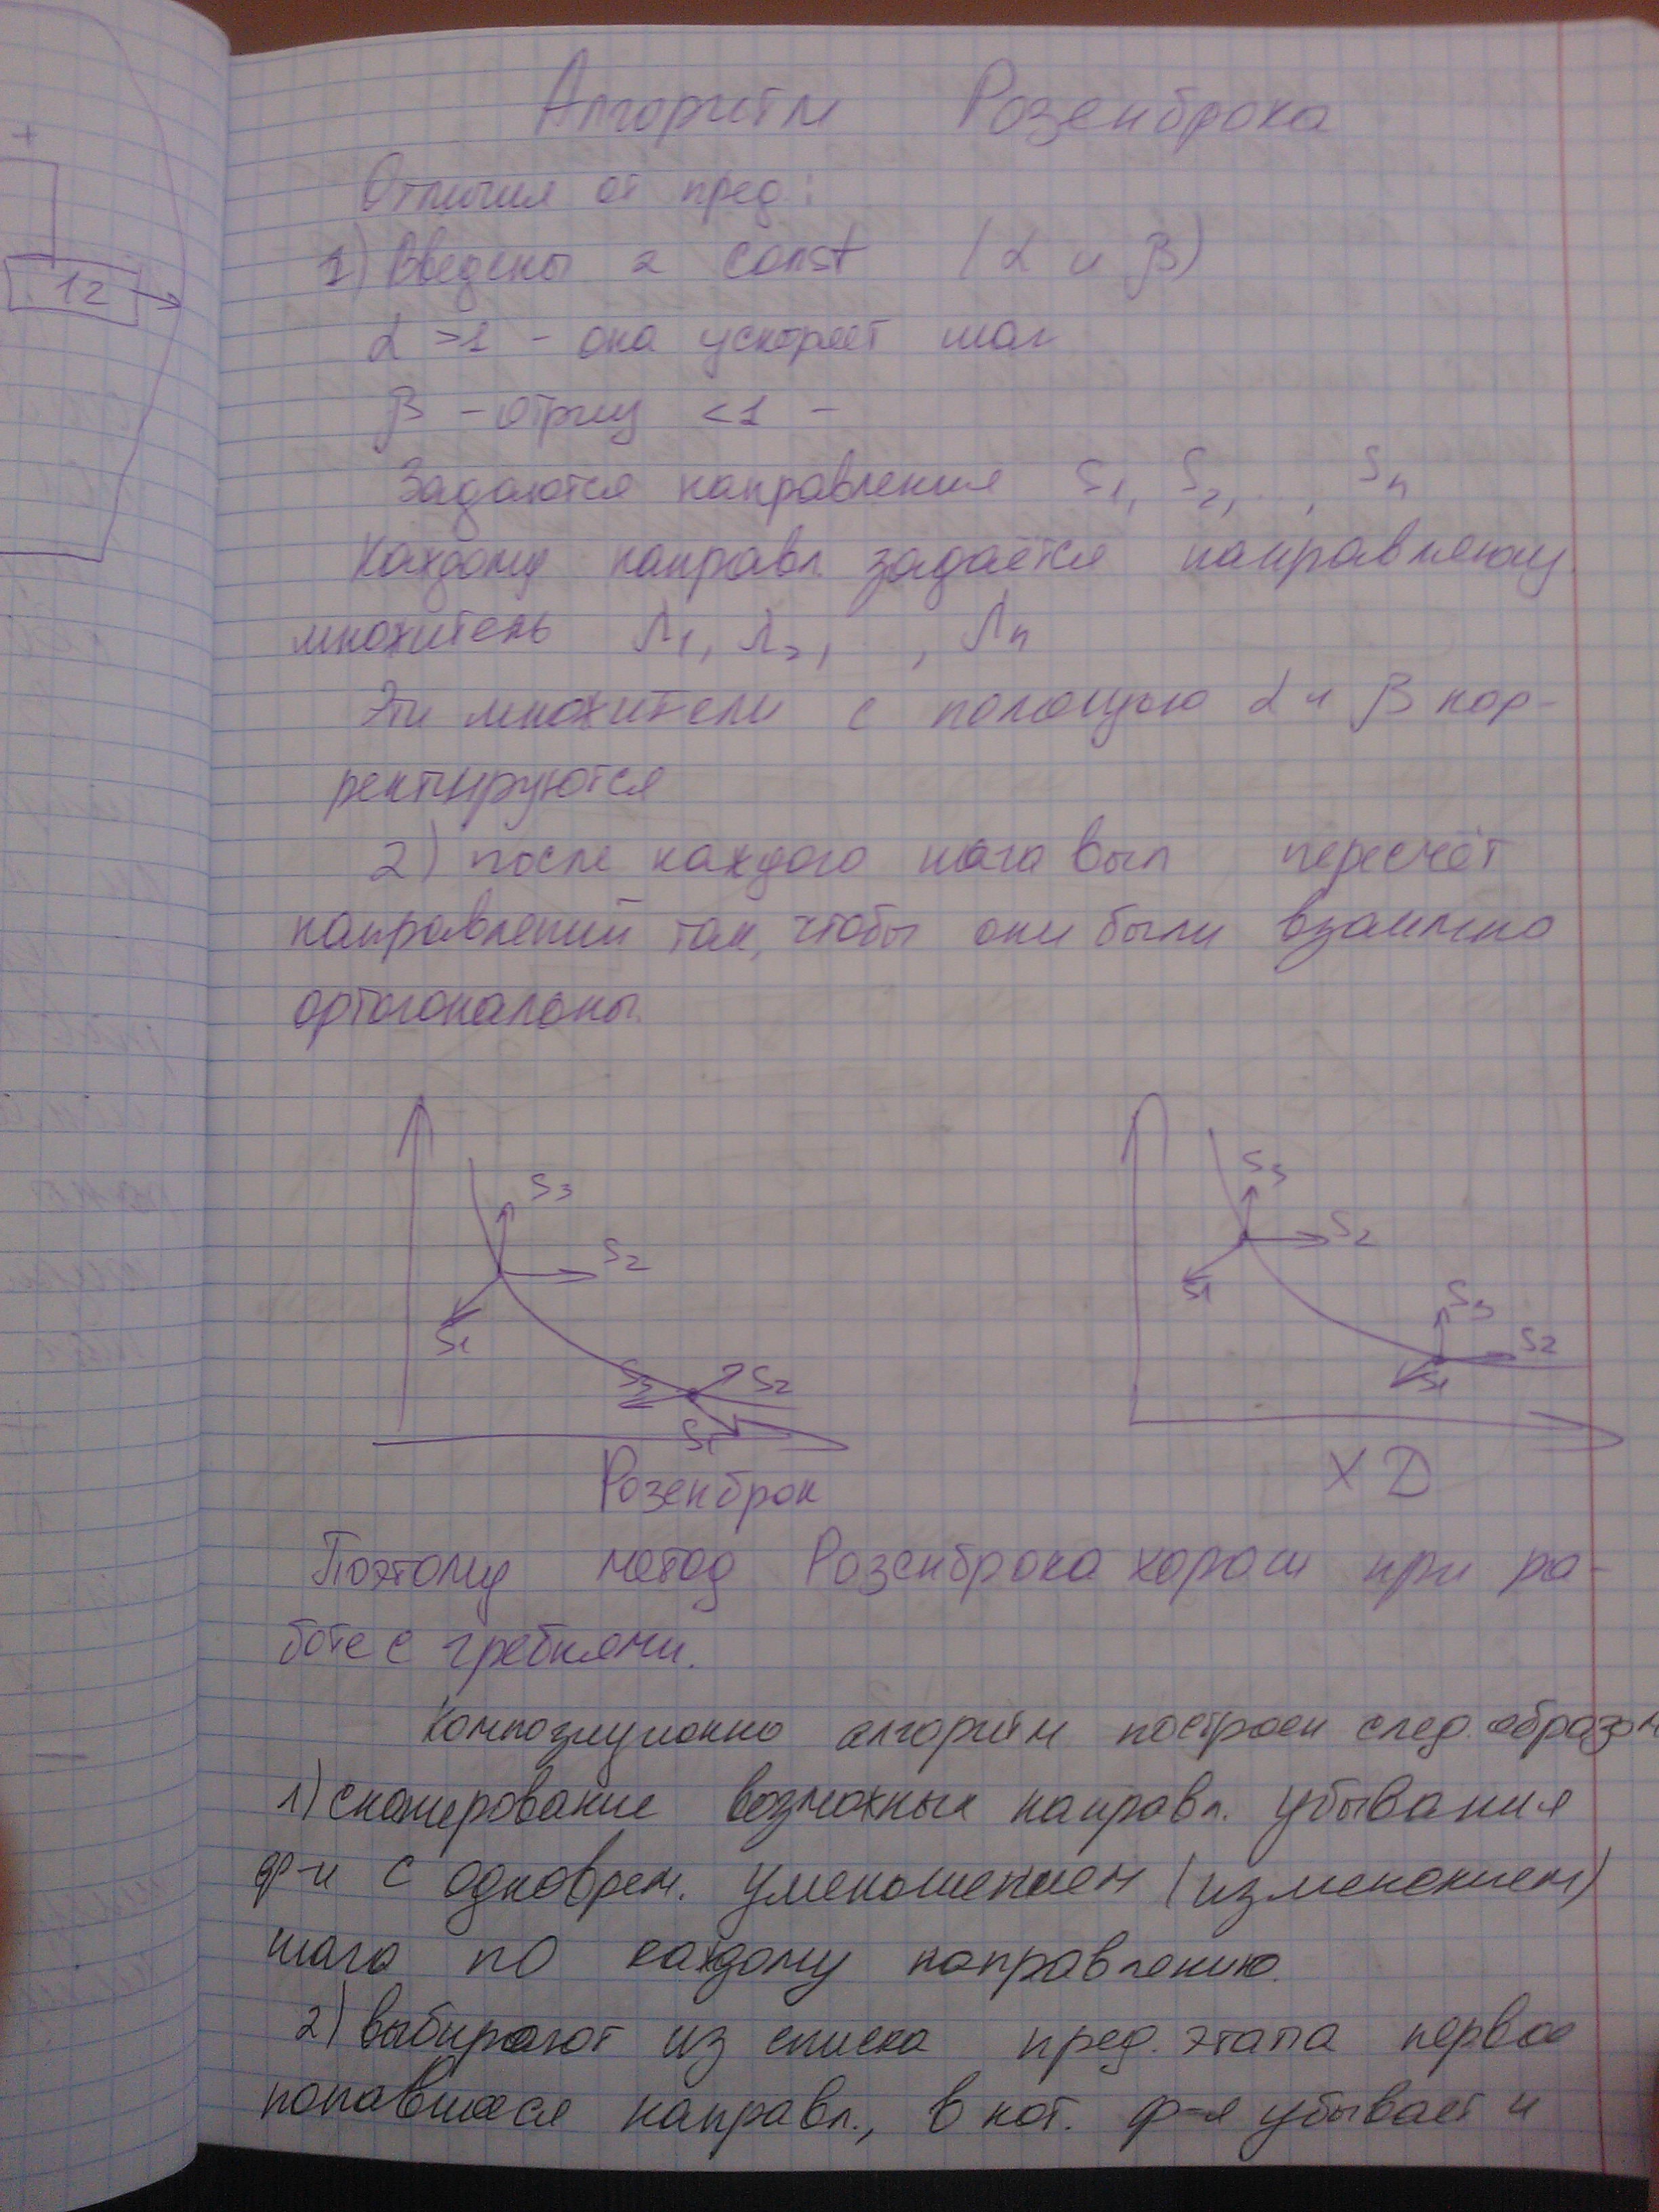 +
12
Алгоритм Розенброка
Отличия от пред.:
1) Введены 2 const (α и β)
α >1 - она ускоряет шаг
β - отриц <1 -
Задаются направления S1, S2, . . , Sn
Каждому направл. задаётся направляющ.
множитель λ1, λ2, . . , λn
Эти множители с помощью α и β кор-
ректируются
2) после каждого шага вып пересчёт
направлений так, чтобы они были взаимно
ортогональны.
S3 S2 S1 S3 S2 S1
S3 S2 S1 S3 S2 S1
Розенброк ХД
Поэтому метод Розенброка хорош при ра-
боте с гребнями.
Композиционно алгоритм построен след. образом
1) сканирование возможных направл. убывания
ф-и с одноврем. уменьшением (изменением)
шага по каждому направлению.
2) выбирают из списка пред. этапа первое
попавшееся направл., в кот. ф-я убывает и